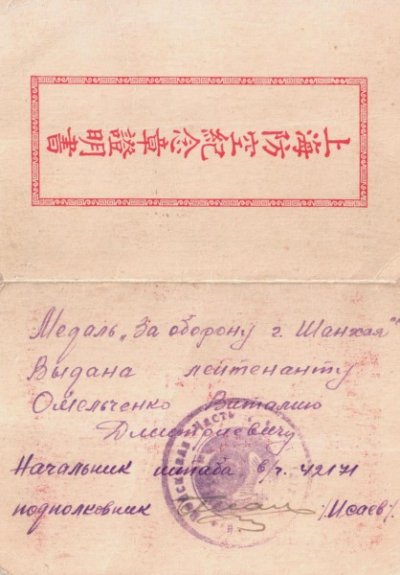 上海防空紀念章證明書
Медаль „За оборону г. Шанхая"
Выдана лейтенанту
Омельченко Виталию
Дмитриевичу
Войсковая часть
Начальник штаба в/ч. 42171
подполковник /Исаев/.